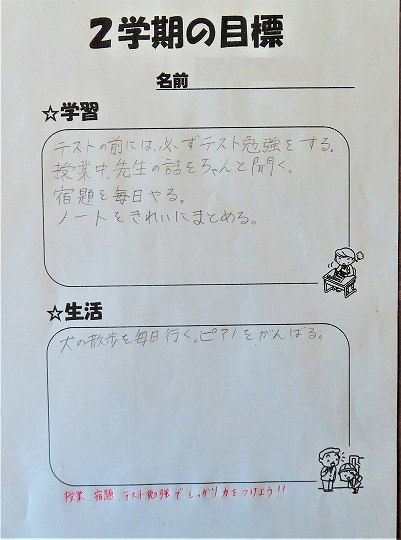 2学期の目標
名前
☆学習
テストの前には、必ずテスト勉強をする。
授業中、先生の話をちゃんと聞く。
宿題を毎日やる。
ノートをきれいにまとめる。
☆生活
犬の散歩を毎日行く。ピアノをがんばる。
授業 宿題 テスト勉強で しっかり力をつけよう!!